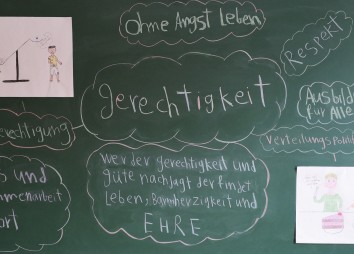 Ohne Angst Leben
Respekt
gerechtigkeit
Ausbild
für Alle
erechtigung
Verteilungs
wer der gerechtigkeit und
güte nachjagt der findet
Leben, Barmherzigkeit und
EHRE
s und
menarbeit
ort